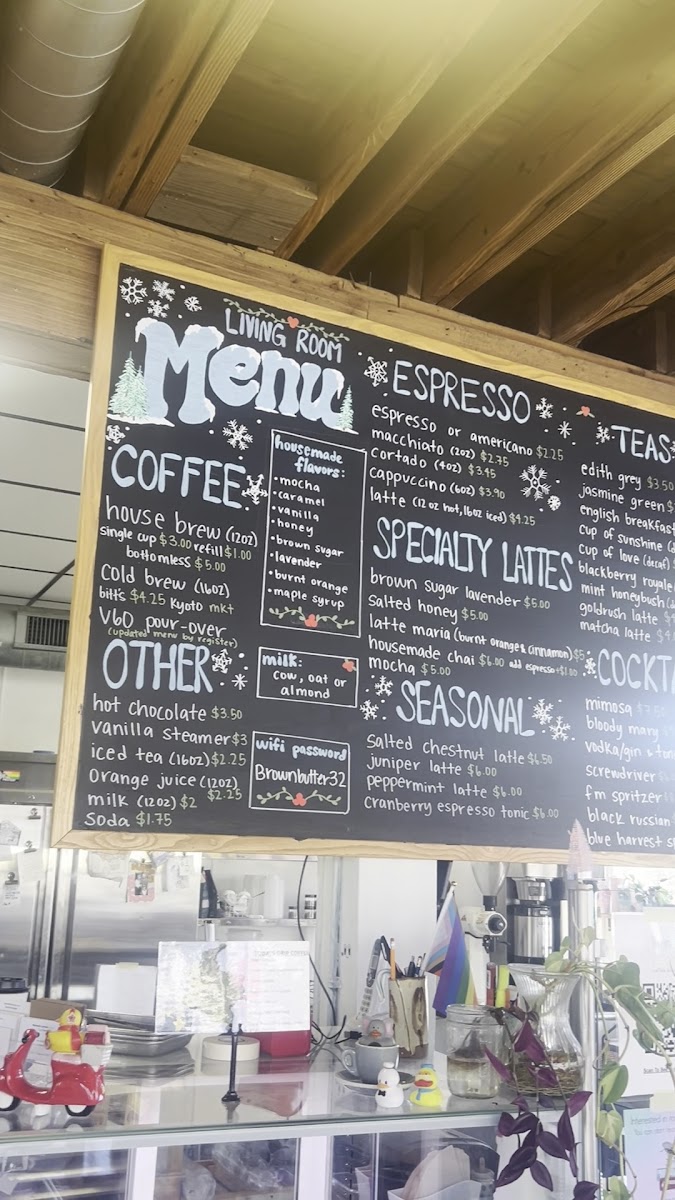 LIVING ROOM
Menu
COFFEE
house brew (12oz)
single cup $3.00 refill $1.00
bottomless $5.00
cold brew (16oz)
bitt's $4.25 kyoto mkt
V60 pour-over
(updated menu by register)
OTHER
hot chocolate $3.50
vanilla steamer $3
iced tea (16oz) $2.25
orange juice (12oz)
$2.25
milk (12oz) $2
soda $1.75
housemade
flavors:
• mocha
• caramel
• vanilla
• honey
• brown sugar
• lavender
• burnt orange
• maple syrup
milk:
cow, oat or
almond
wifi password
Brownbutter32
ESPRESSO
espresso or americano $2.25
macchiato (2oz) $2.75
cortado (4oz) $3.45
cappuccino (6oz) $3.90
latte (12oz hot, 16oz iced) $4.25
SPECIALTY LATTES
brown sugar lavender $5.00
salted honey $5.00
latte maria (burnt orange & cinnamon) $5
housemade chai $6.00 add espresso +$1.00
mocha $5.00
SEASONAL
salted chestnut latte $6.50
juniper latte $6.00
peppermint latte $6.00
cranberry espresso tonic $6.00
TEAS
edith grey $3.50
jasmine green $
english breakfast
cup of sunshine (d
cup of love (decaf)
blackberry royale
mint honeybush (d
goldrush latte $
matcha latte $4
COCKTA
mimosa
bloody mary
vodka/gin & ton
screwdriver
fm spritzer
black russian
blue harvest s